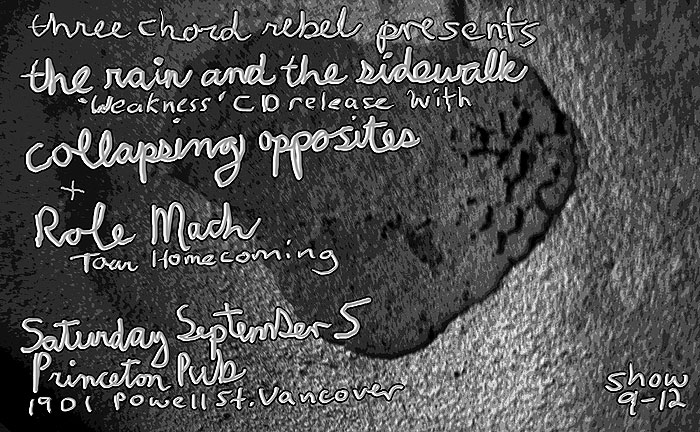 three chord rebel presents
the rain and the sidewalk
"Weakness" CD release with
collapsing opposites
+
Role Mach
Tour Homecoming
Saturday September 5
Princeton Pub
1901 Powell St. Vancouver
show
9-12